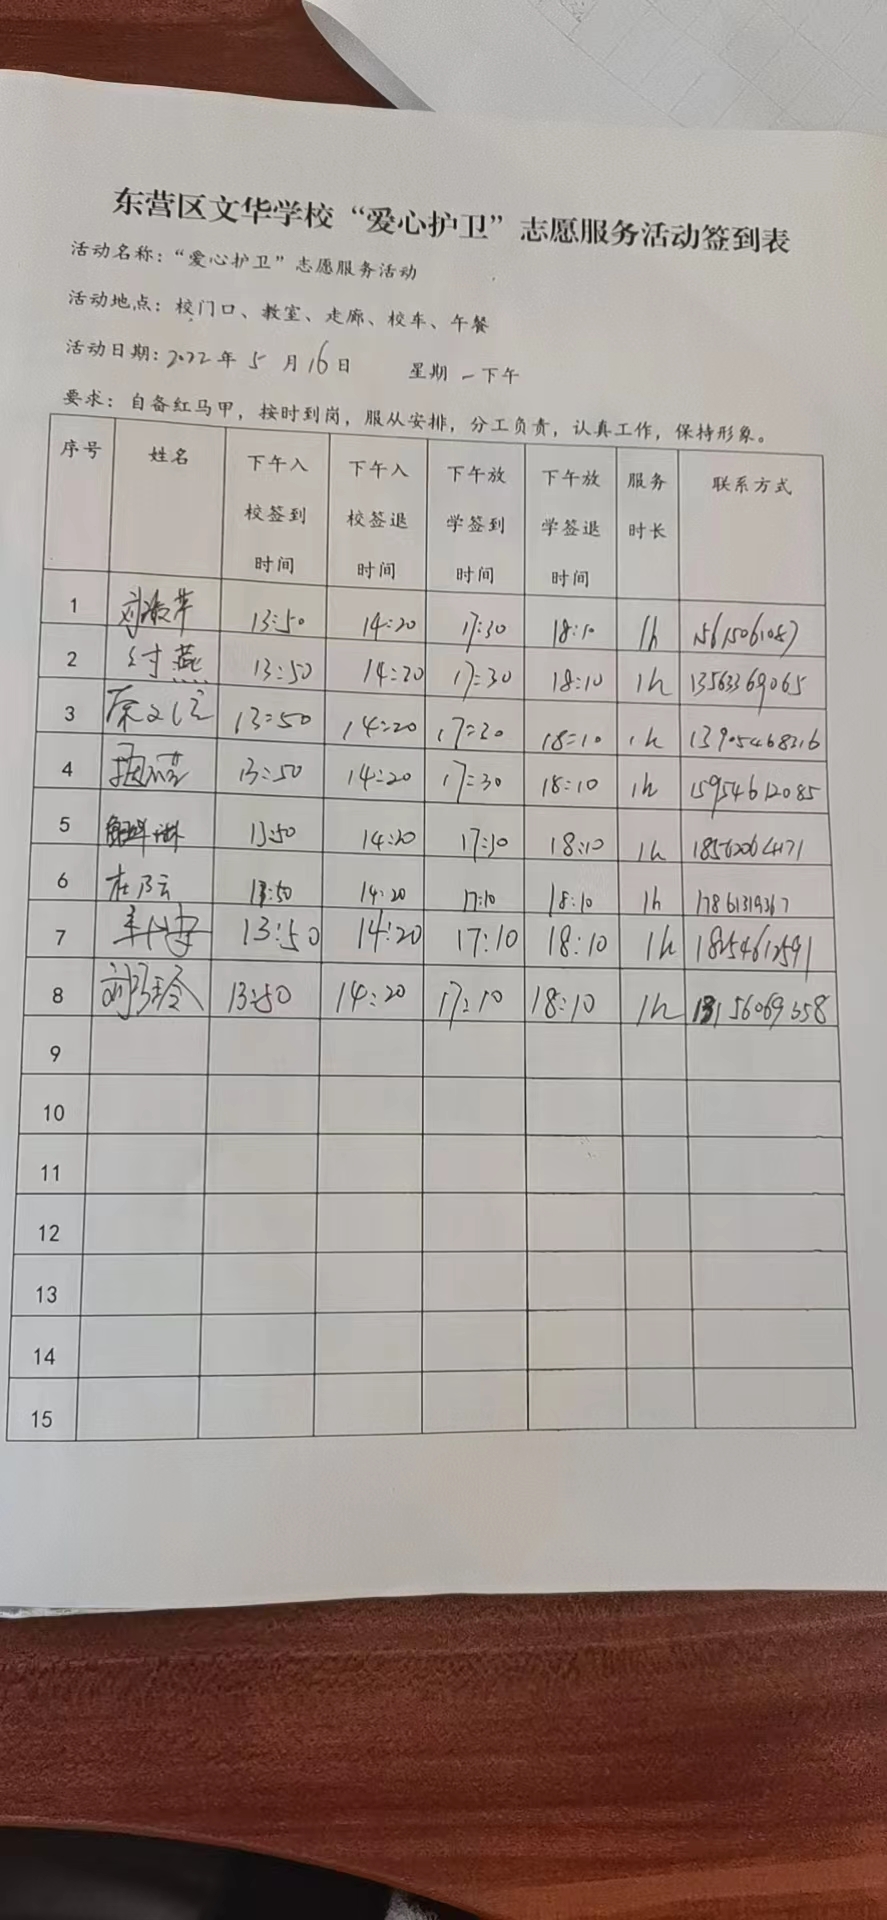 东营区文华学校“爱心护卫”志愿服务活动签到表
活动名称：“爱心护卫”志愿服务活动
活动地点：校门口、教室、走廊、校车、午餐
活动日期：2022年5月16日 星期一下午
要求：自备红马甲，按时到岗，服从安排，分工负责，认真工作，保持形象。
序号 姓名 下午入校签到时间 下午入校签退时间 下午放学签到时间 下午放学签退时间 服务时长 联系方式
1 13:50 14:20 17:30 18:10 1h 15615061087
2 付燕 13:50 14:20 17:30 18:10 1h 13563369065
3 13:50 14:20 17:30 18:10 1h 13905468316
4 13:50 14:20 17:30 18:10 1h 15954612085
5 13:50 14:20 17:30 18:10 1h 18562064171
6 杜乃云 13:50 14:20 17:10 18:10 1h 17861319367
7 13:50 14:20 17:10 18:10 1h 18254612591
8 13:50 14:20 17:10 18:10 1h
9
10
11
12
13
14
15